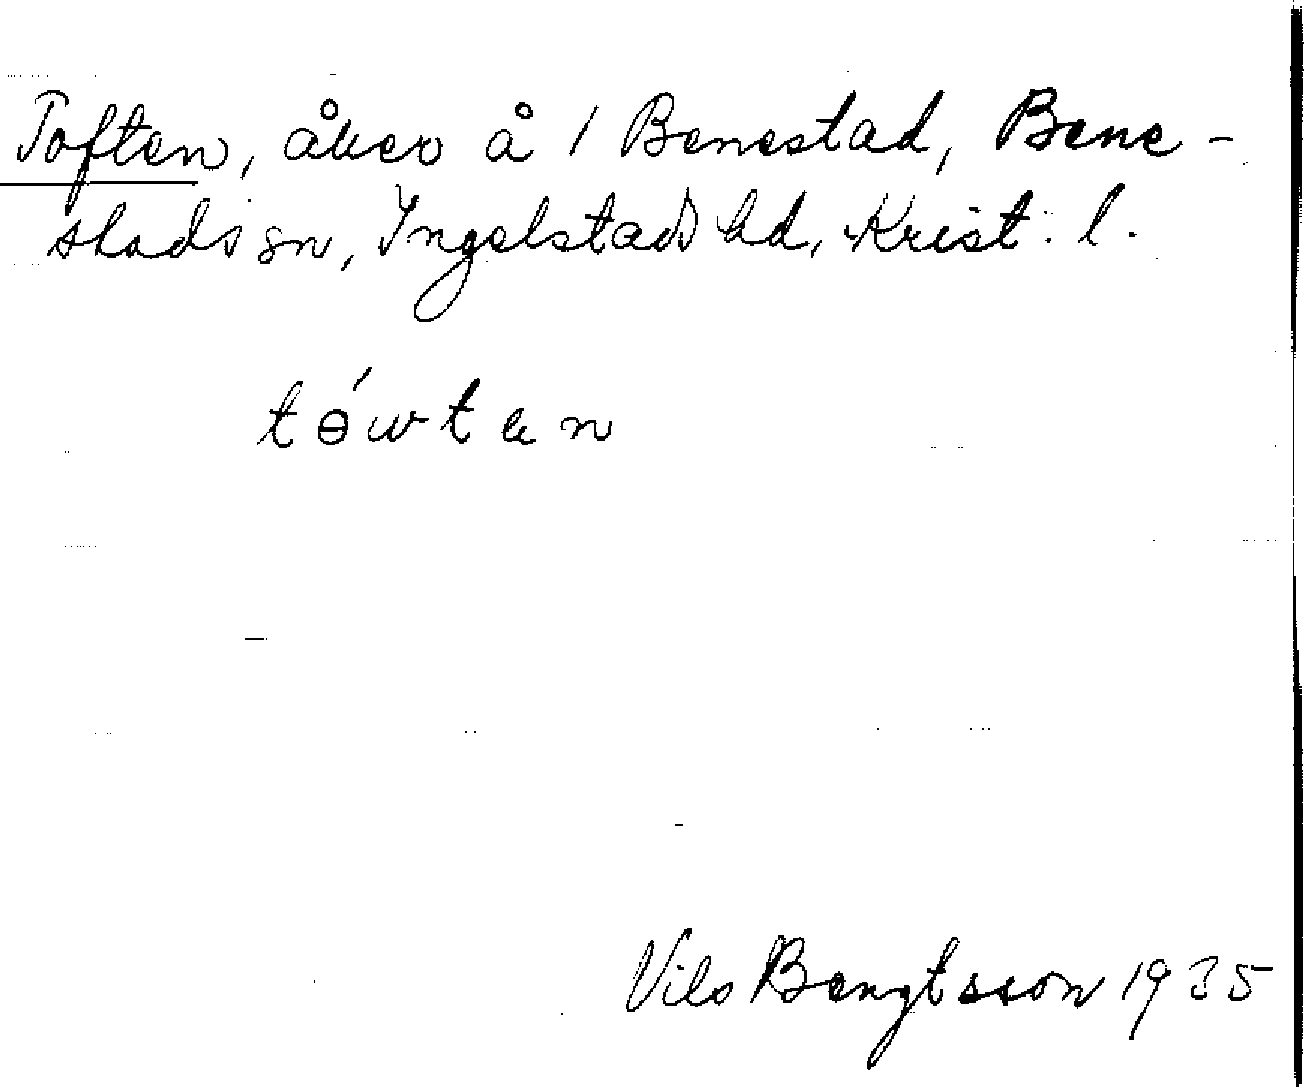 Toften, åker å 1 Benestad, Bene-
stads sn, Ingelstads hd, Krist. l.
tɵ́wtən
Nils Bengtsson 1935